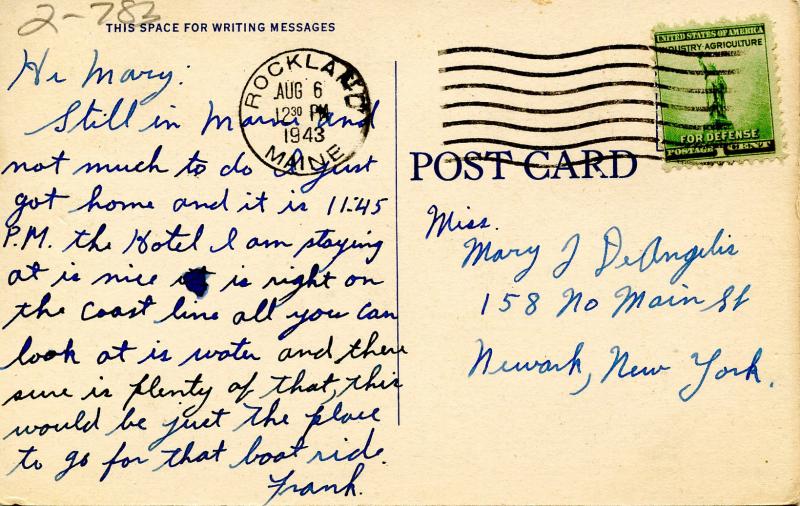 2-782
THIS SPACE FOR WRITING MESSAGES
Hi Mary:
Still in Maine and
not much to do I just
got home and it is 11:45
P.M. the Hotel I am staying
at is nice it is right on
the coast line all you can
look at is water and there
sure is plenty of that, this
would be just the place
to go for that boat ride.
Frank.
ROCKLAND
AUG 6
12 30 PM
1943
MAINE
UNITED STATES OF AMERICA
INDUSTRY · AGRICULTURE
FOR DEFENSE
POSTAGE 1 CENT
POST CARD
Miss.
Mary J DeAngelis
158 No Main St
Newark, New York.